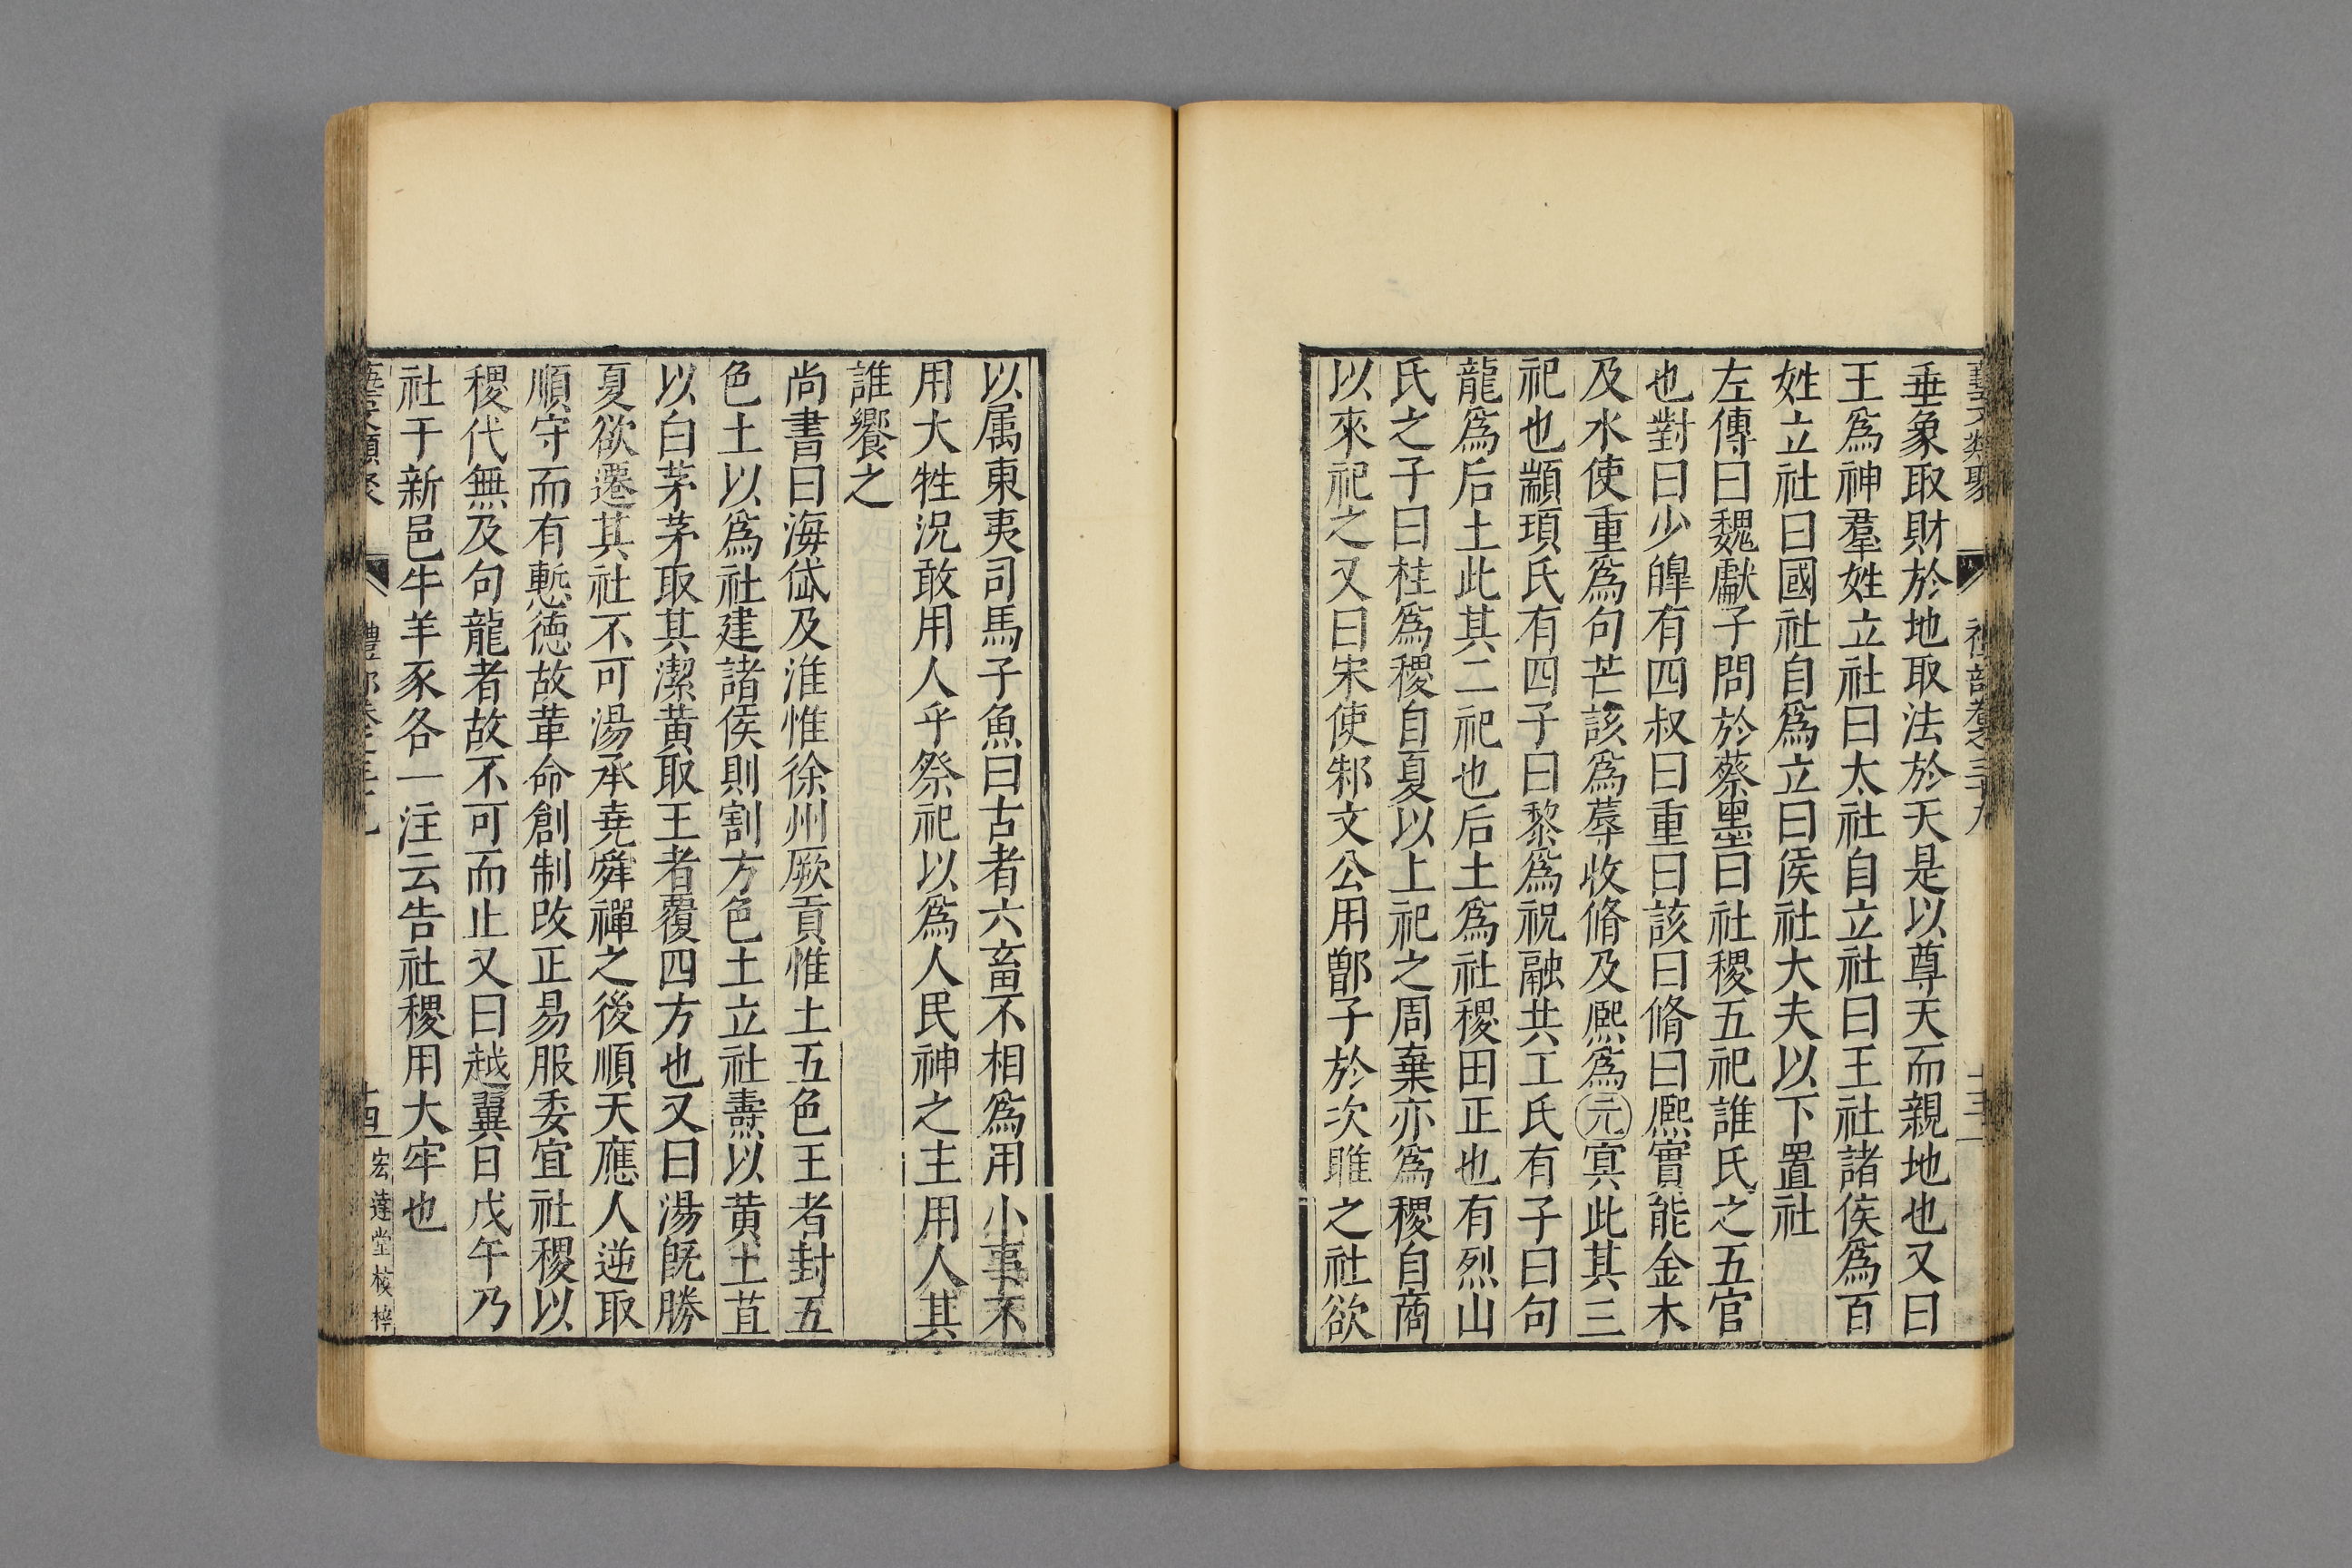 藝文類聚 禮部卷之三十九 十三
垂象取財於地取法於天是以尊天而親地也又曰
王爲神羣姓立社曰太社自立社曰王社諸侯爲百
姓立社曰國社自爲立曰侯社大夫以下置社
左傳曰魏獻子問於蔡墨曰社稷五祀誰氏之五官
也對曰少皥有四叔曰重曰該曰脩曰熈實能金木
及水使重爲句芒該爲蓐收脩及熈爲元冥此其三
祀也顓頊氏有四子曰黎爲祝融共工氏有子曰句
龍爲后土此其二祀也后土爲社稷田正也有烈山
氏之子曰柱爲稷自夏以上祀之周棄亦爲稷自商
以來祀之又曰宋使邾文公用鄫子於次雎之社欲
以属東夷司馬子魚曰古者六畜不相爲用小事不
用大牲況敢用人乎祭祀以爲人民神之主用人其
誰饗之
尚書曰海岱及淮惟徐州厥貢惟土五色王者封五
色土以爲社建諸侯則割方色土立社燾以黄土苴
以白茅茅取其潔黄取王者覆四方也又曰湯旣勝
夏欲遷其社不可湯承堯舜禪之後順天應人逆取
順守而有慙德故革命創制改正易服委宜社稷以
稷代無及句龍者故不可而止又曰越翼日戊午乃
社于新邑牛羊豕各一注云告社稷用大牢也
藝文類聚 禮部卷之三十九 十四 宏達堂校梓